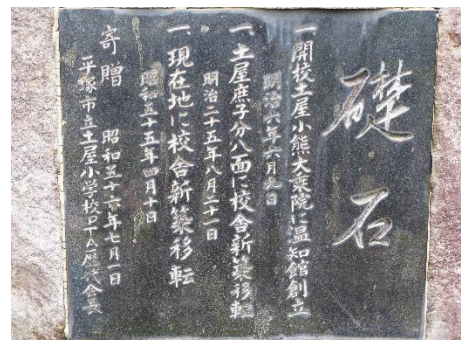 礎石
一、開校土屋小熊大乗院に温知館創立
明治六年六月 日
一、土屋庶子分八面に校舎新築移転
明治二十五年八月二十一日
一、現在地に校舎新築移転
昭和五十五年四月十日
寄贈 昭和五十六年七月一日
平塚市立土屋小学校PTA歴代会長